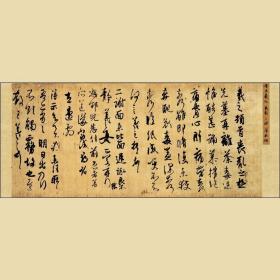 羲之頓首喪亂之極
先墓再離荼毒追
惟酷甚號慕摧絕
痛貫心肝痛當奈何
奈何雖即脩復未獲
奔馳哀毒益深奈何
奈何臨紙感哽不知
何言羲之頓首頓首
二謝面未比面遲詠良不
靜羲之女愛再拜
想邵兒悉佳前患者善
所送議當試尋省
左邊劇
得示知足下猶未佳耿耿
吾亦劣劣明日出乃行
不欲觸霧故也遲散
王羲之頓首